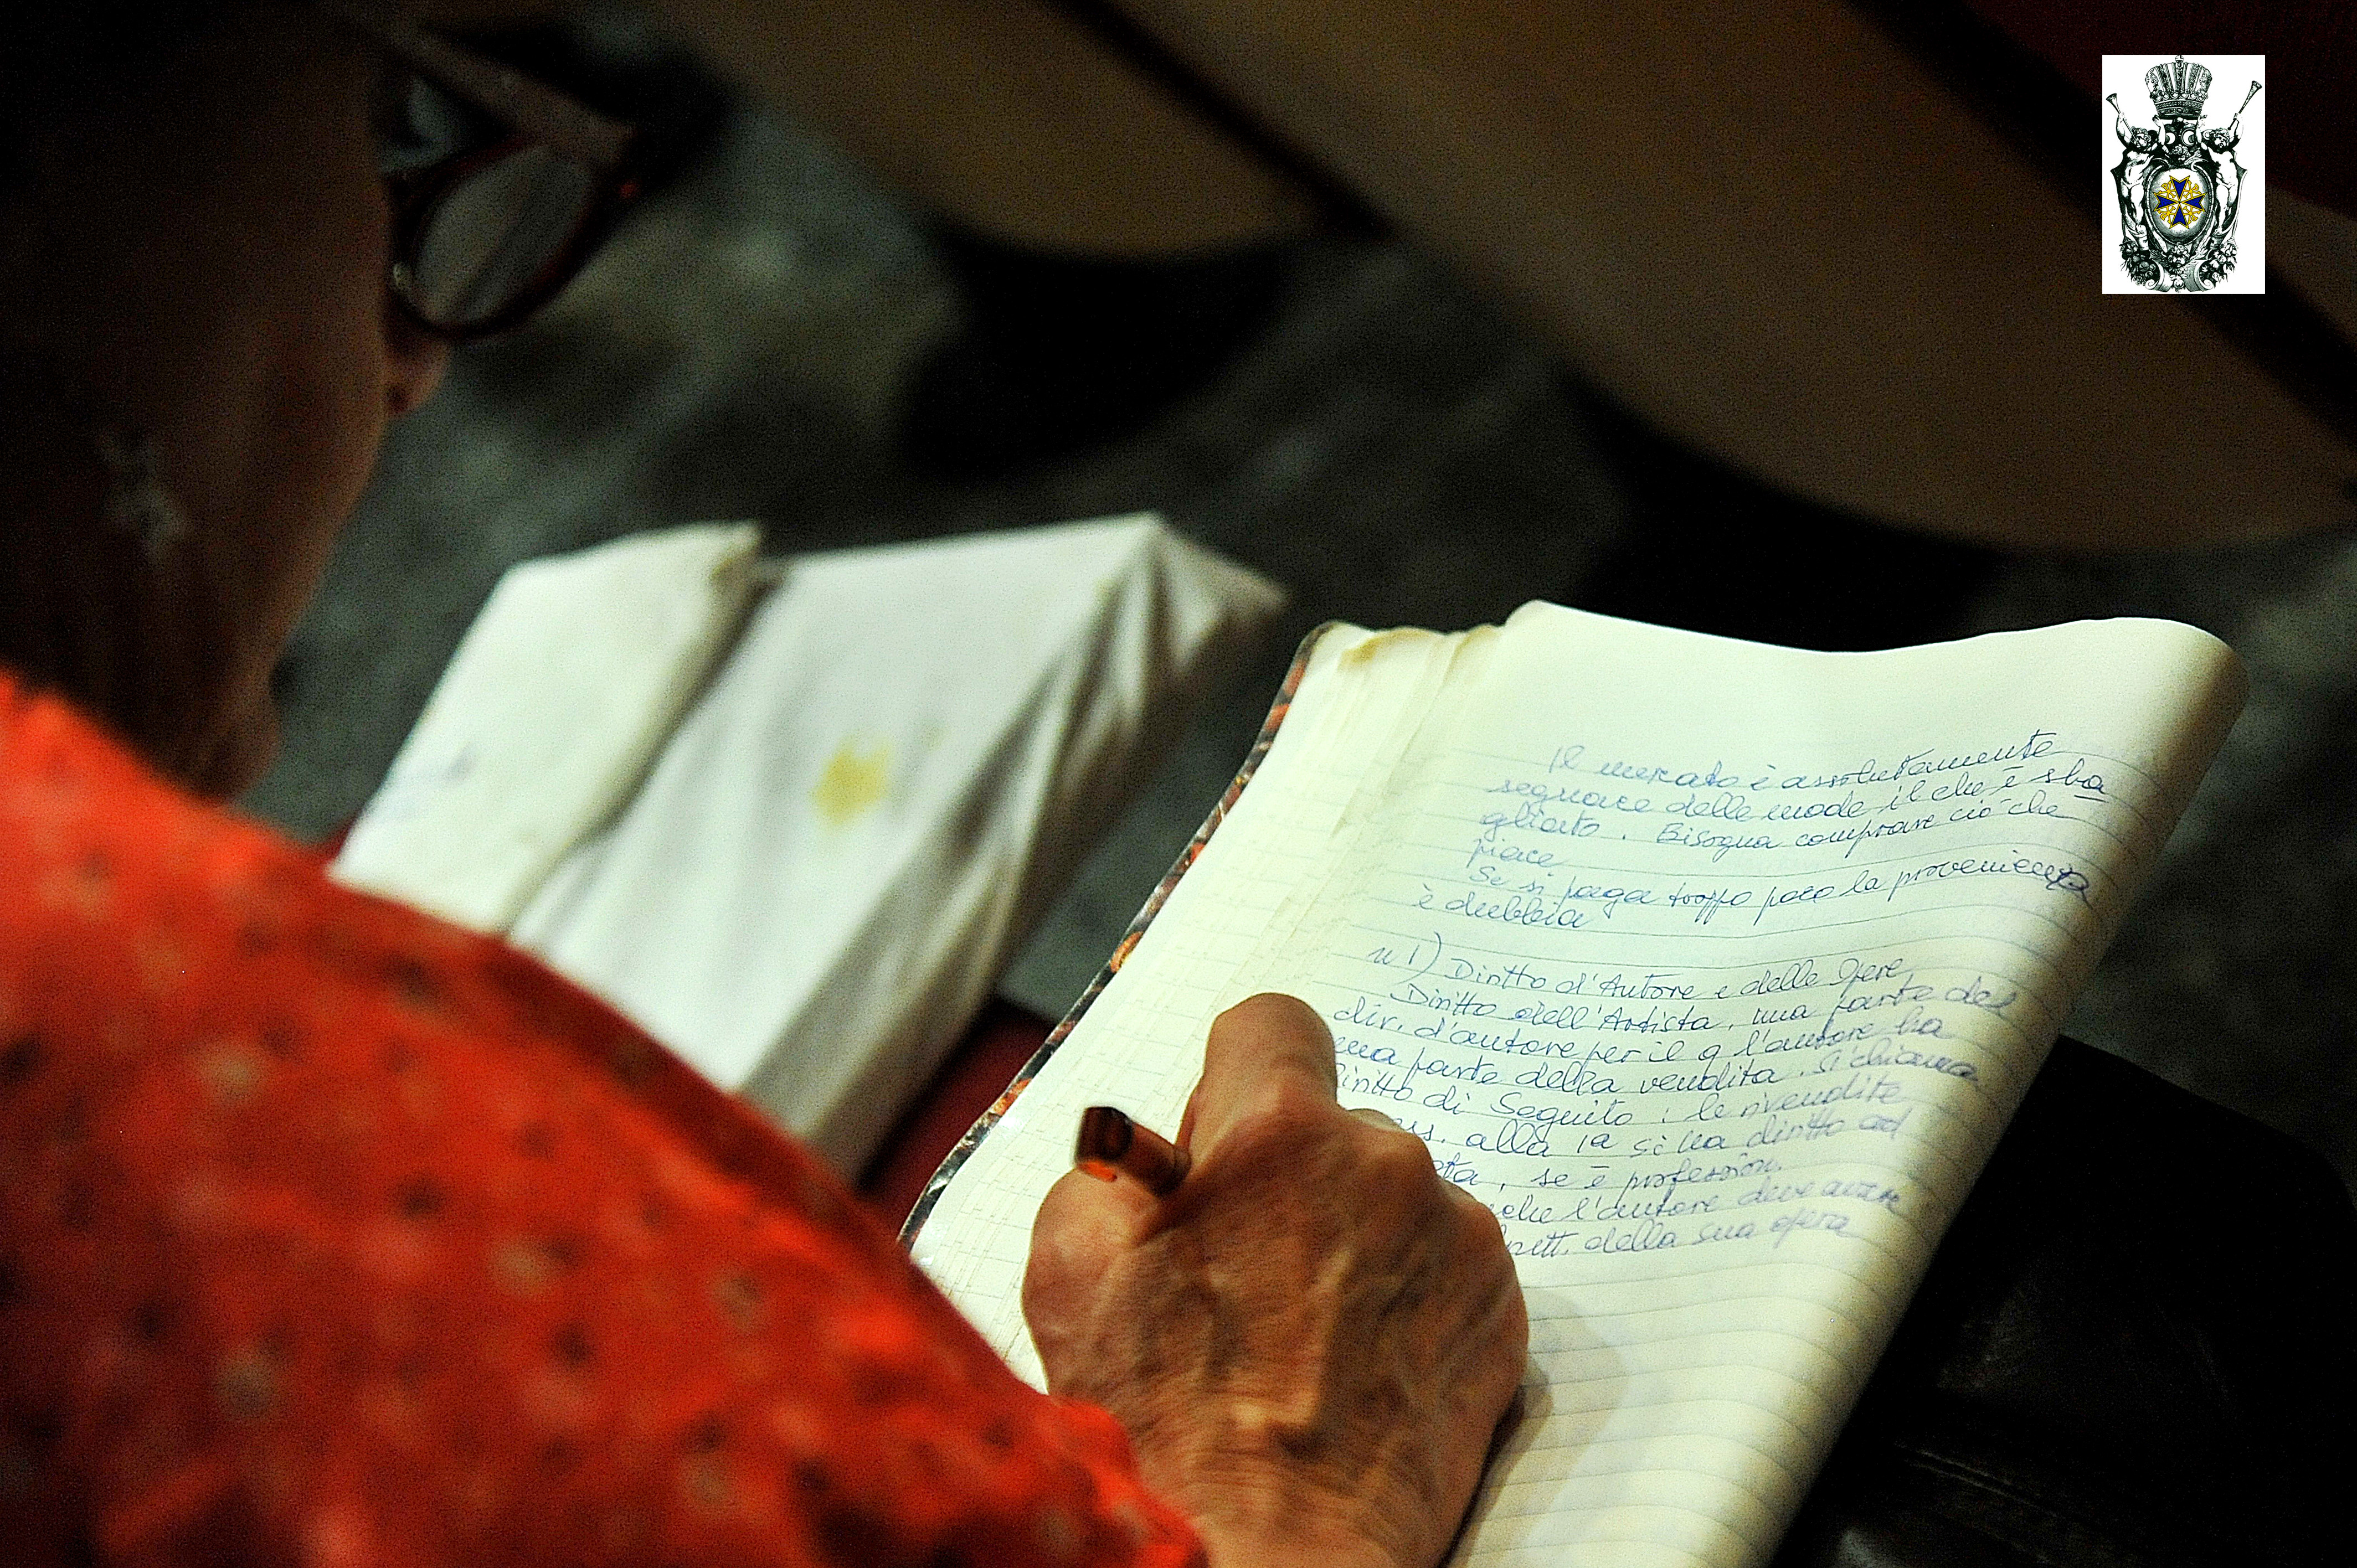 Il mercato è assolutamente
seguace delle mode il che è sba
gliato. Bisogna comprare ciò che
piace
Se si paga troppo poco la provenienza
è dubbia
n 1) Diritto d'Autore e delle Opere
Diritto dell'Artista, una parte del
dir. d'autore per il q l'autore ha
una parte della vendita. Si chiama
Diritto di Seguito : le rivendite
alla 1a si ha diritto ad
se è profession.
che l'autore deve avere
della sua opera